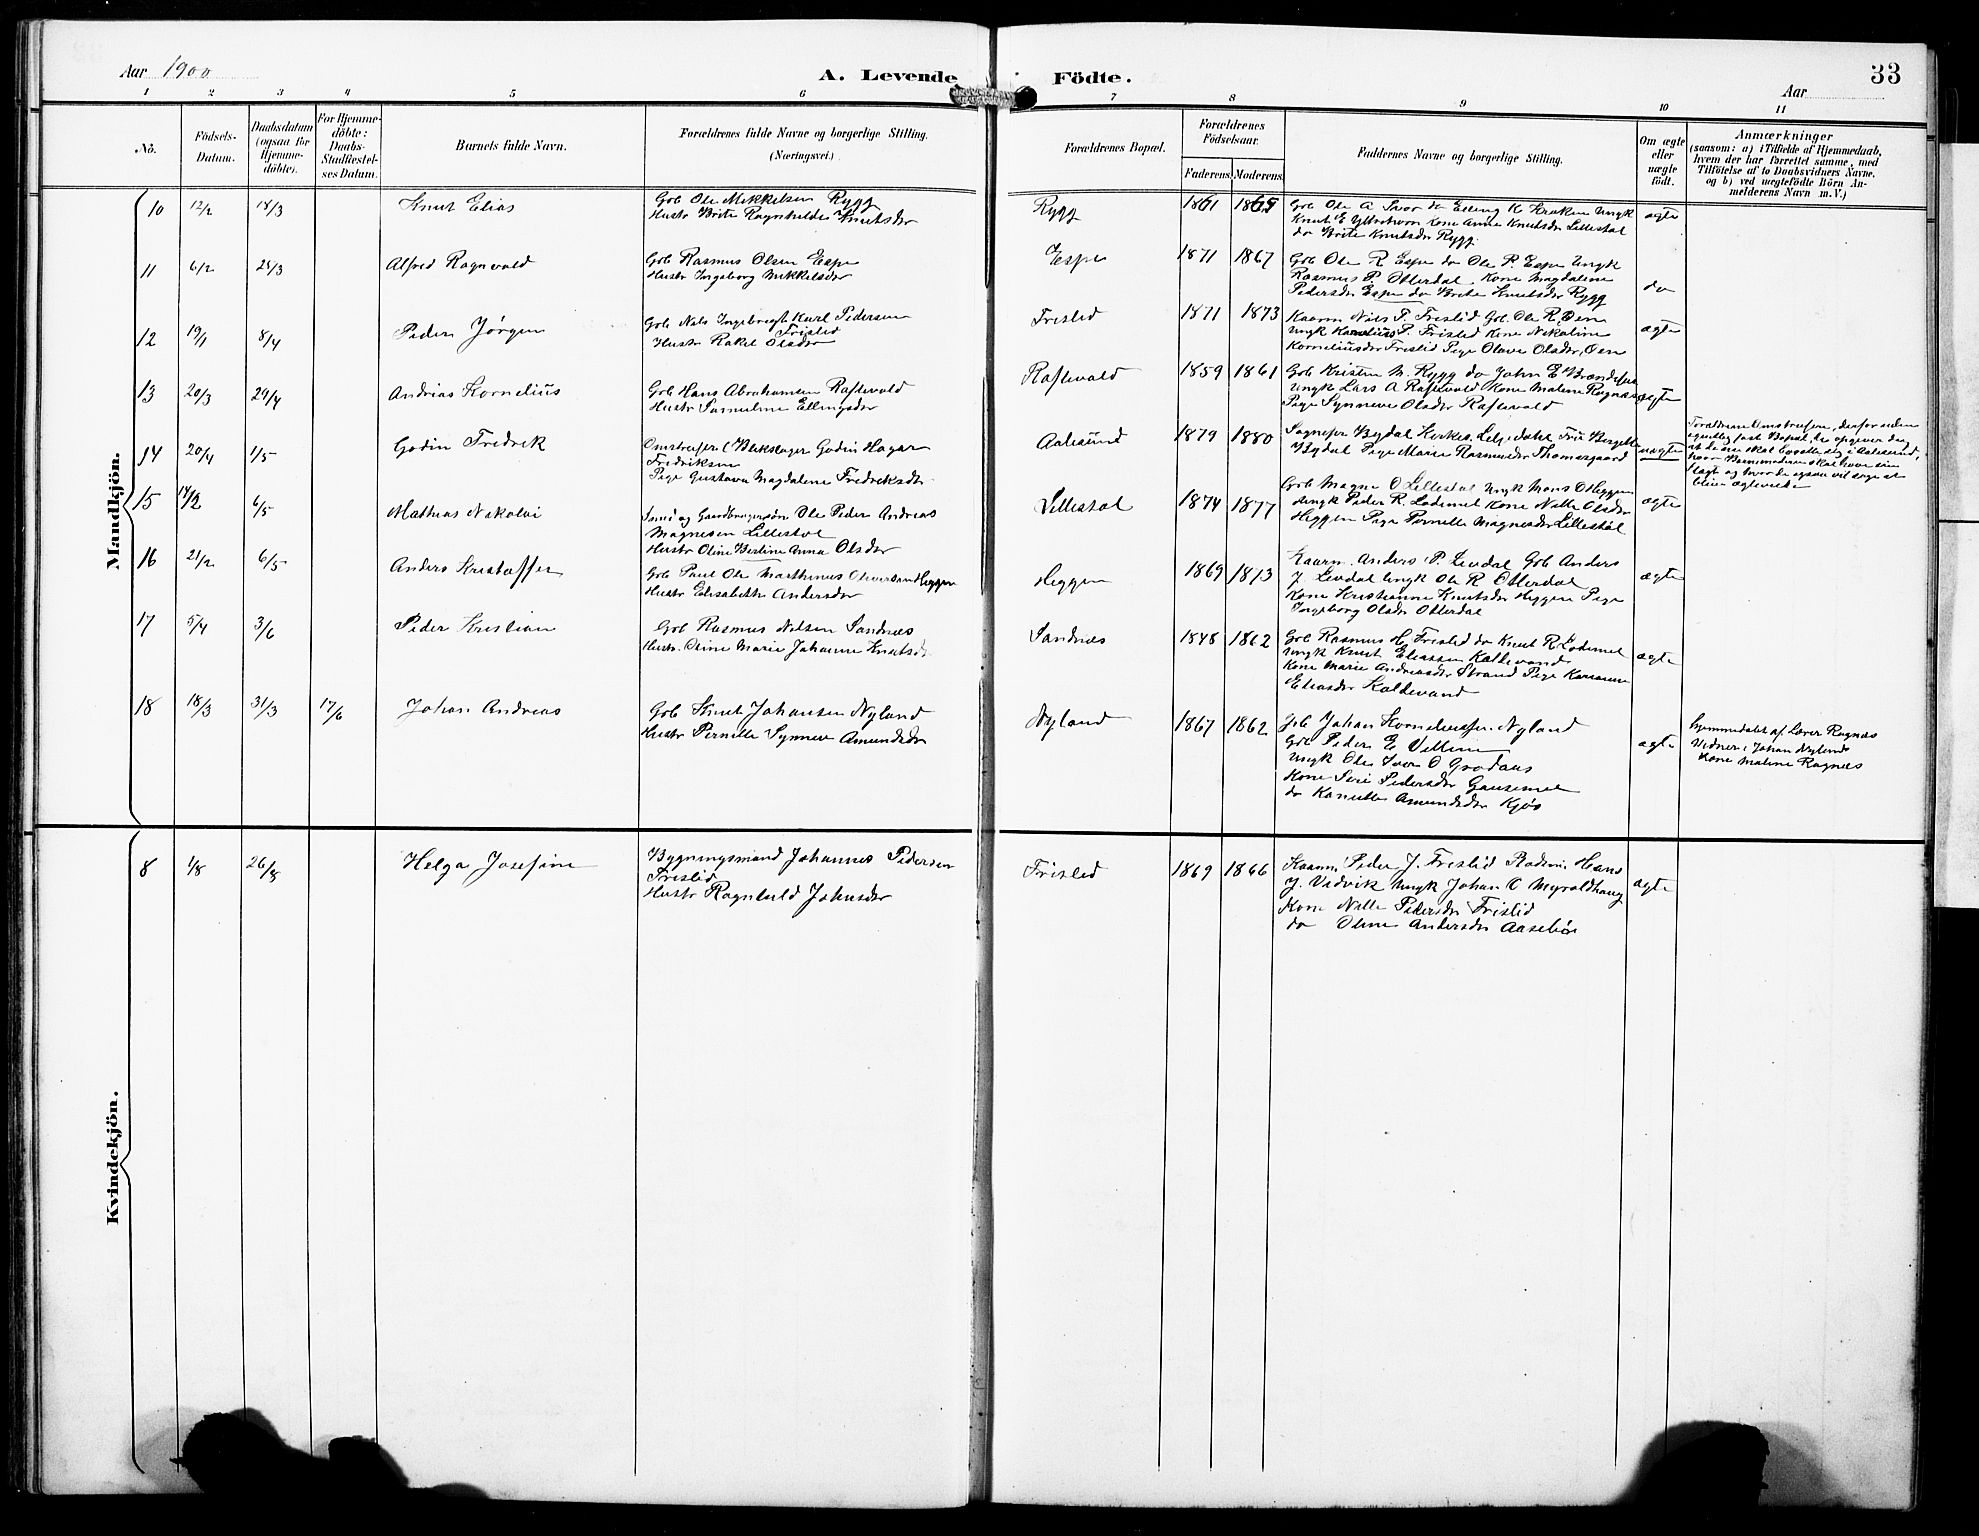 Aar 1900
A. Levende Födte.
33
Aar
1 2 3 4 5 6 7 8 9 10 11
No.
Födsels-Datum.
Daabsdatum (ogsaa for Hjemme-döbte).
For Hjemme-döbte: Daabs-Stadfæstel-ses Datum.
Barnets fulde Navn.
Forældrenes fulde Navne og borgerlige Stilling. (Næringsvei.)
Forældrenes Bopæl.
Forældrenes Födselsaar.
Faderens. Moderens.
Faddernes Navne og borgerlige Stilling.
Om ægte eller uægte födt.
Anmærkninger
(saasom: a) i Tilfælde af Hjemmedaab, hvem der har forrettet samme, med Tilföielse af to Daabsvidners Navne, og b) ved uægtefödte Börn Anmelderens Navn m. V.)
Mandkjön.
10 12/2 18/3 Knut Elias
Gbr Ole Mikkelsen Rygg
Hustr Brite Ragnhilde Knutsdr
Rygg 1861 1865
Gbr Ole A Svor do Elling K Kraken Ungk
Knut E Yttrehorn Kone Anne Knutsdr Lillestøl
do Brite Knutsdr Rygg
ægte
11 6/2 25/3 Alfred Ragnvald
Gbr Rasmus Olsen Espe
Hustr Ingeborg Mikkelsdr
Espe 1871 1867
Gbr Ole R Espe do Ole P. Espe Ungk
Rasmus P. Otterdal Kone Magdalene
Pedersdr Espe do Brite Knutsdr Rygg
do
12 19/1 8/4 Peder Jørgen
Gbr Nils Ingebregt Karl Pedersen
Frislid
Hustr Rakel Olsdr
Frislid 1871 1873
Kaarm Nils P. Frislid Gbr Ole R. Øen
Ungk Kornelius P. Frislid Kone Nikoline
Korneliusdr Frislid Pige Olave Olsdr Øen
ægte
13 20/3 29/4 Andrias Kornelius
Gbr Hans Abrahamsen Raftevold
Hustr Samuline Ellingsdr
Raftevold 1859 1861
Gbr Kristen M. Rygg do John E
Ungk Lars A Raftevold Kone Maline Rognæs
Pige Synneve Olsdr Raftevold
ægte
14 20/4 1/5 Godin Fredrik
Omstreifer (Blikslager Godin Hagar
Fredriksen
Pige Gustava Magdalene Fredriksdr
Aalesund 1879 1880
Bydal Pige Marie Rasmusdr Thomasgaard
uægte
15 14/2 6/5 Mathias Nikolai
Smed og Gaardbrugersøn Ole Peder Andreas
Magnesen Lillestøl
Hustr Oline Berline Anna Olsdr
Lillestøl 1874 1877
Gbr Magne O Lillestøl Ungk Mons O Heggen
Ungk Peder R. Lødemel Kone Nille Olsdr
Heggen Pige Pernille Magnesdr Lillestøl
ægte
16 21/2 6/5 Anders Kristoffer
Gbr Paul Ole Marthinus Heggen
Hustr Elisabeth Andersdr
Heggen 1869 1873
Kaarm. Anders P. Levdal Gbr Anders
J. Levdal Ungk Ole R Otterdal
Kone Kristianne Knutsdr Heggen Pige
Ingeborg Olsdr Otterdal
ægte
17 5/4 3/6 Peder Kristian
Gbr Rasmus Nilsen Sandnæs
Hustr. Oline Marie Johanne Knutsd
Sandnæs 1848 1862
Gbr Rasmus H. Frislid do Knut R. Lødemel
Ungk Knut Eliassen Kaldevand
Kone Marie Andreasdr Strand Pige
Eliasdr Kaldevand
ægte
18 18/3 31/3 17/6 Johan Andreas
Gbr Knut Johansen Nyland
Hustr Pernille Synneve Amundsdr
Nyland 1867 1862
Gbr Johan Korneliussen Nyland
Gbr Peder E
Ungk Ole Iver O Grodaas
Kone Siri Pedersdr Gausemel
do Kanutte Amundsdr Kjøs
ægte
hjemmedøbt af Lærer Rognæs
Vidner: Johan Nyland
Kone Maline Rognæs
Kvindekjön.
8 1/8 26/8 Helga Josefine
Bygningsmand Johannes Pedersen
Frislid
Hustr Ragnhild Johnsdr
Frislid 1869 1866
Kaarm Peder J. Frislid Hans
J. Vedvik Ungk Johan O Myroldhaug
Kone Nille Pedersdr Frislid
do Oline Andersdr Aasebø
ægte